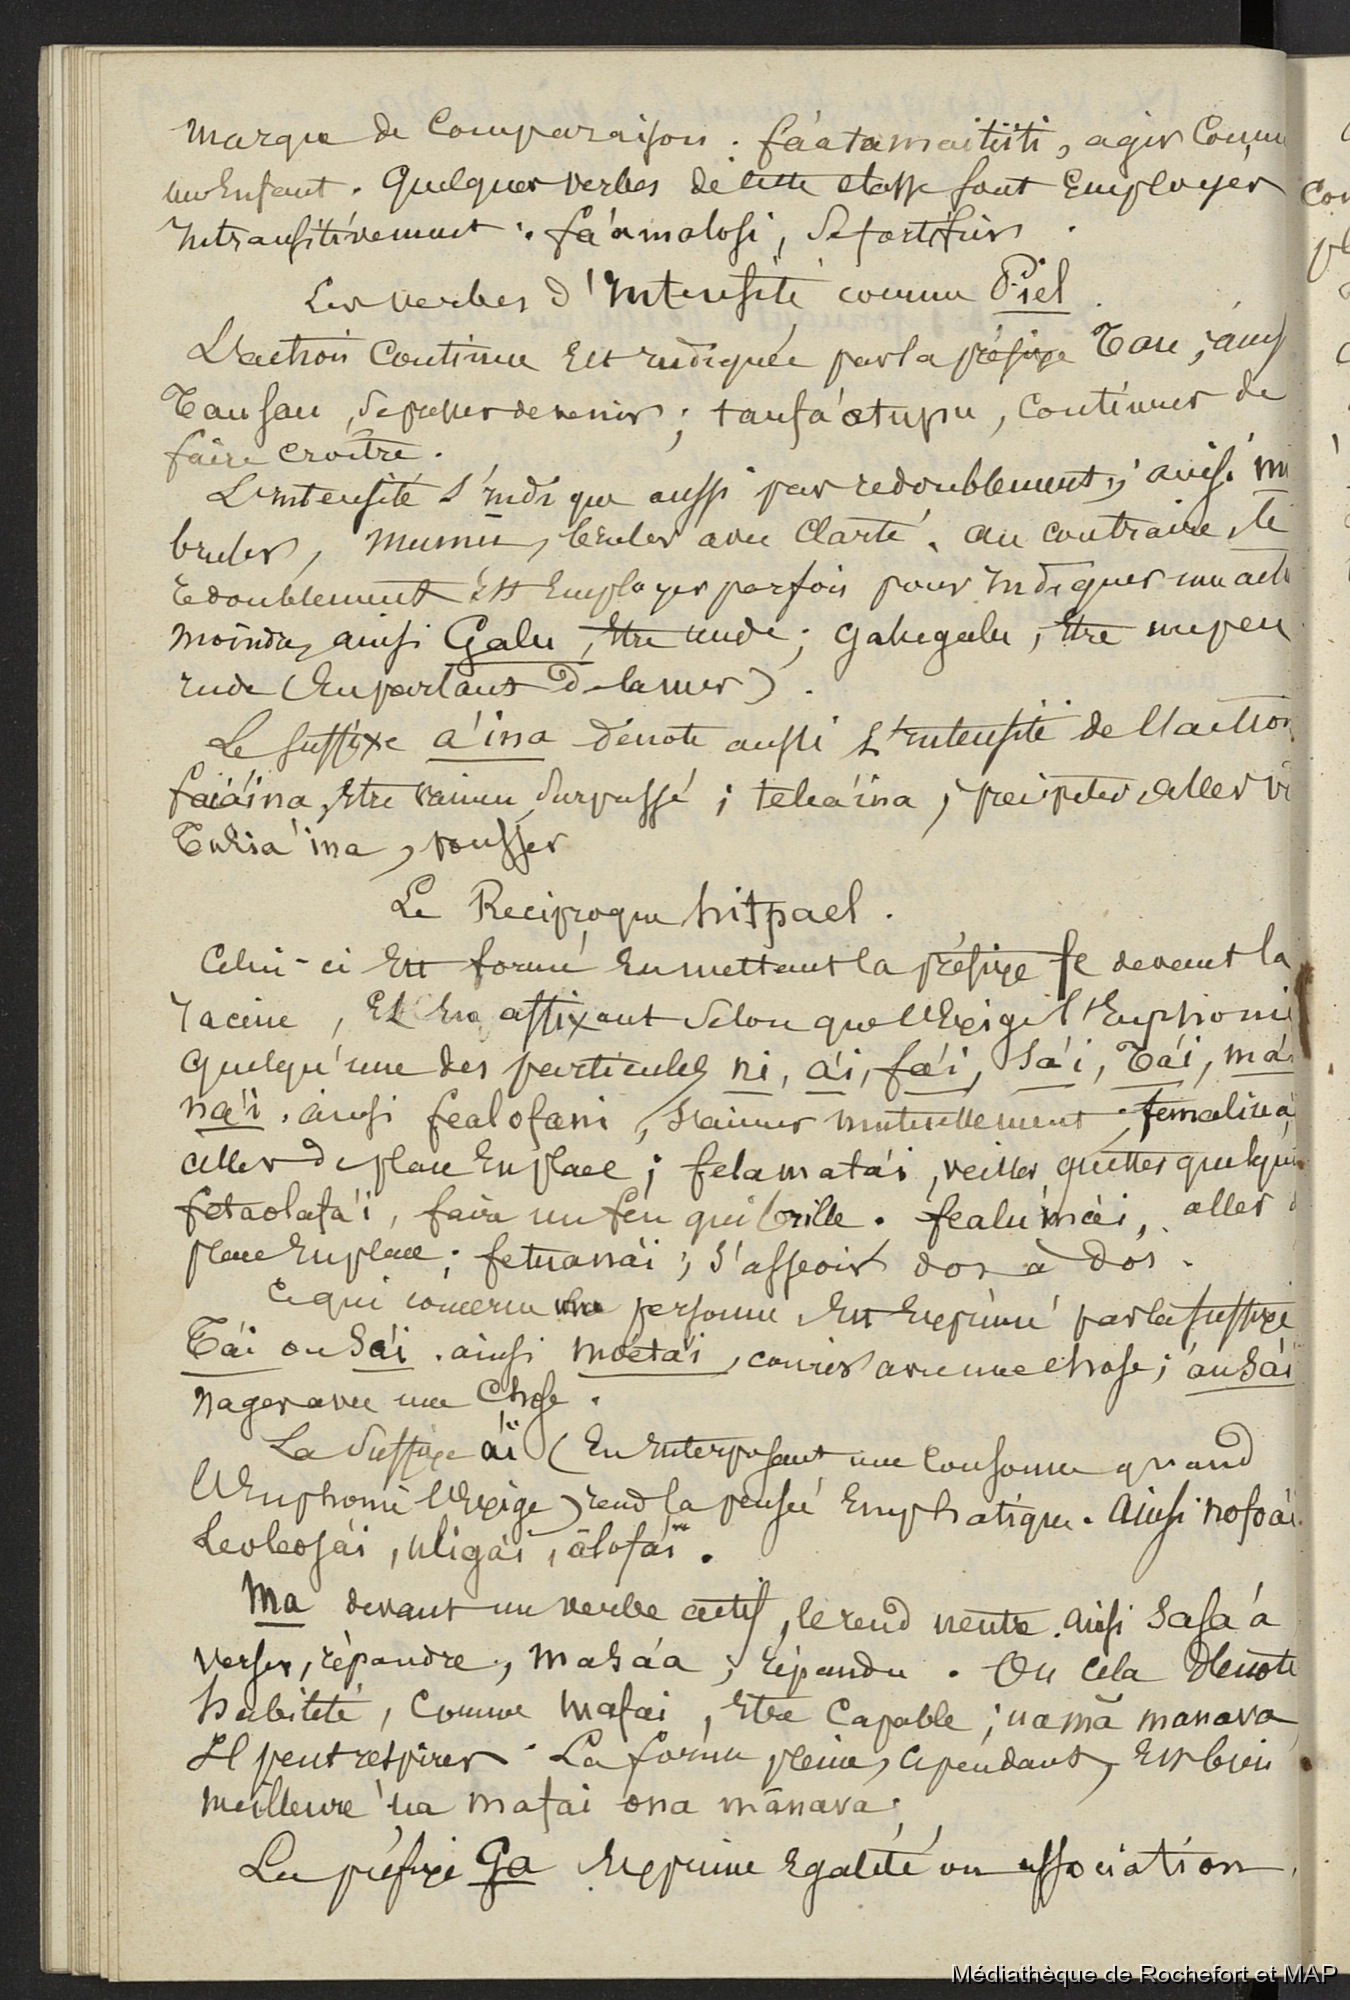 marque de Comparaison. fáatamaitiiti, agir Comm
un Enfant. Quelques verbes de cette classe sont Employés
Intransitivement : fa'amalosi, se fortifier.
Les verbes d'Intensité comme Piel.
L'action Continue Est indiquée par la préfixe Tau ; ainsi
Tausau, de venir ; taufa'atupu, Continuer de
faire croître.
L'intensité s'indique aussi par redoublement ; ainsi mu
bruler, mumu, bruler avec Clarté. au contraire, le
redoublement Est Employer parfois pour Indiquer une act
moindre, ainsi Galu, Etre rude ; galugalu, Etre un peu
rude (En parlant de la mer).
Le suffixe a'ina dénote aussi L'intensité de l'action
faiáina, Etre vaincu, surpassé ; teleáina, aller vi
Tulia'ina, pousser
Le Reciproque hitpael.
Celui-ci Est formé En mettant la préfixe fe devant la
racine, Et En affixant selon que l'Exige l'Euphonie
quelqu'une des particules ni, a'i, fa'i, sa'i, Ta'i, ma'i
na'i. ainsi fealofani, s'aimer mutuellement ; femaliua'i
aller de place En place ; felamata'i, veiller, guetter quelqu'un
fetaolafa'i, faire un feu qui brille. fealuma'i, aller d
place En place ; fetuana'i ; s'asseoir dos à dos.
Ce qui concerne une personne Est Exprimé par la suffixe
Ta'i ou Sa'i. ainsi moeta'i, courir avec une chose ; ausa'i
nager avec une Chose.
La Suffixe a'i (En Interposant une Consonne quand
l'Euphonie l'Exige) rend la pensée Emphatique. Ainsi nofoa'i
Leoleosa'i, uligai, ālofa'i.
Ma devant un verbe actif, le rend neutre. Ainsi Sasa'a
verser, répandre, masáa ; répandu. Ou cela dénote
habileté, Comme mafai, Etre Capable ; ua mā manava
Il peut respirer. La forme pleine, cependant, Est bien
meilleure ua mafai ona mānava.
La préfixe Ga Exprime Egalité ou association.
Médiathèque de Rochefort et MAP